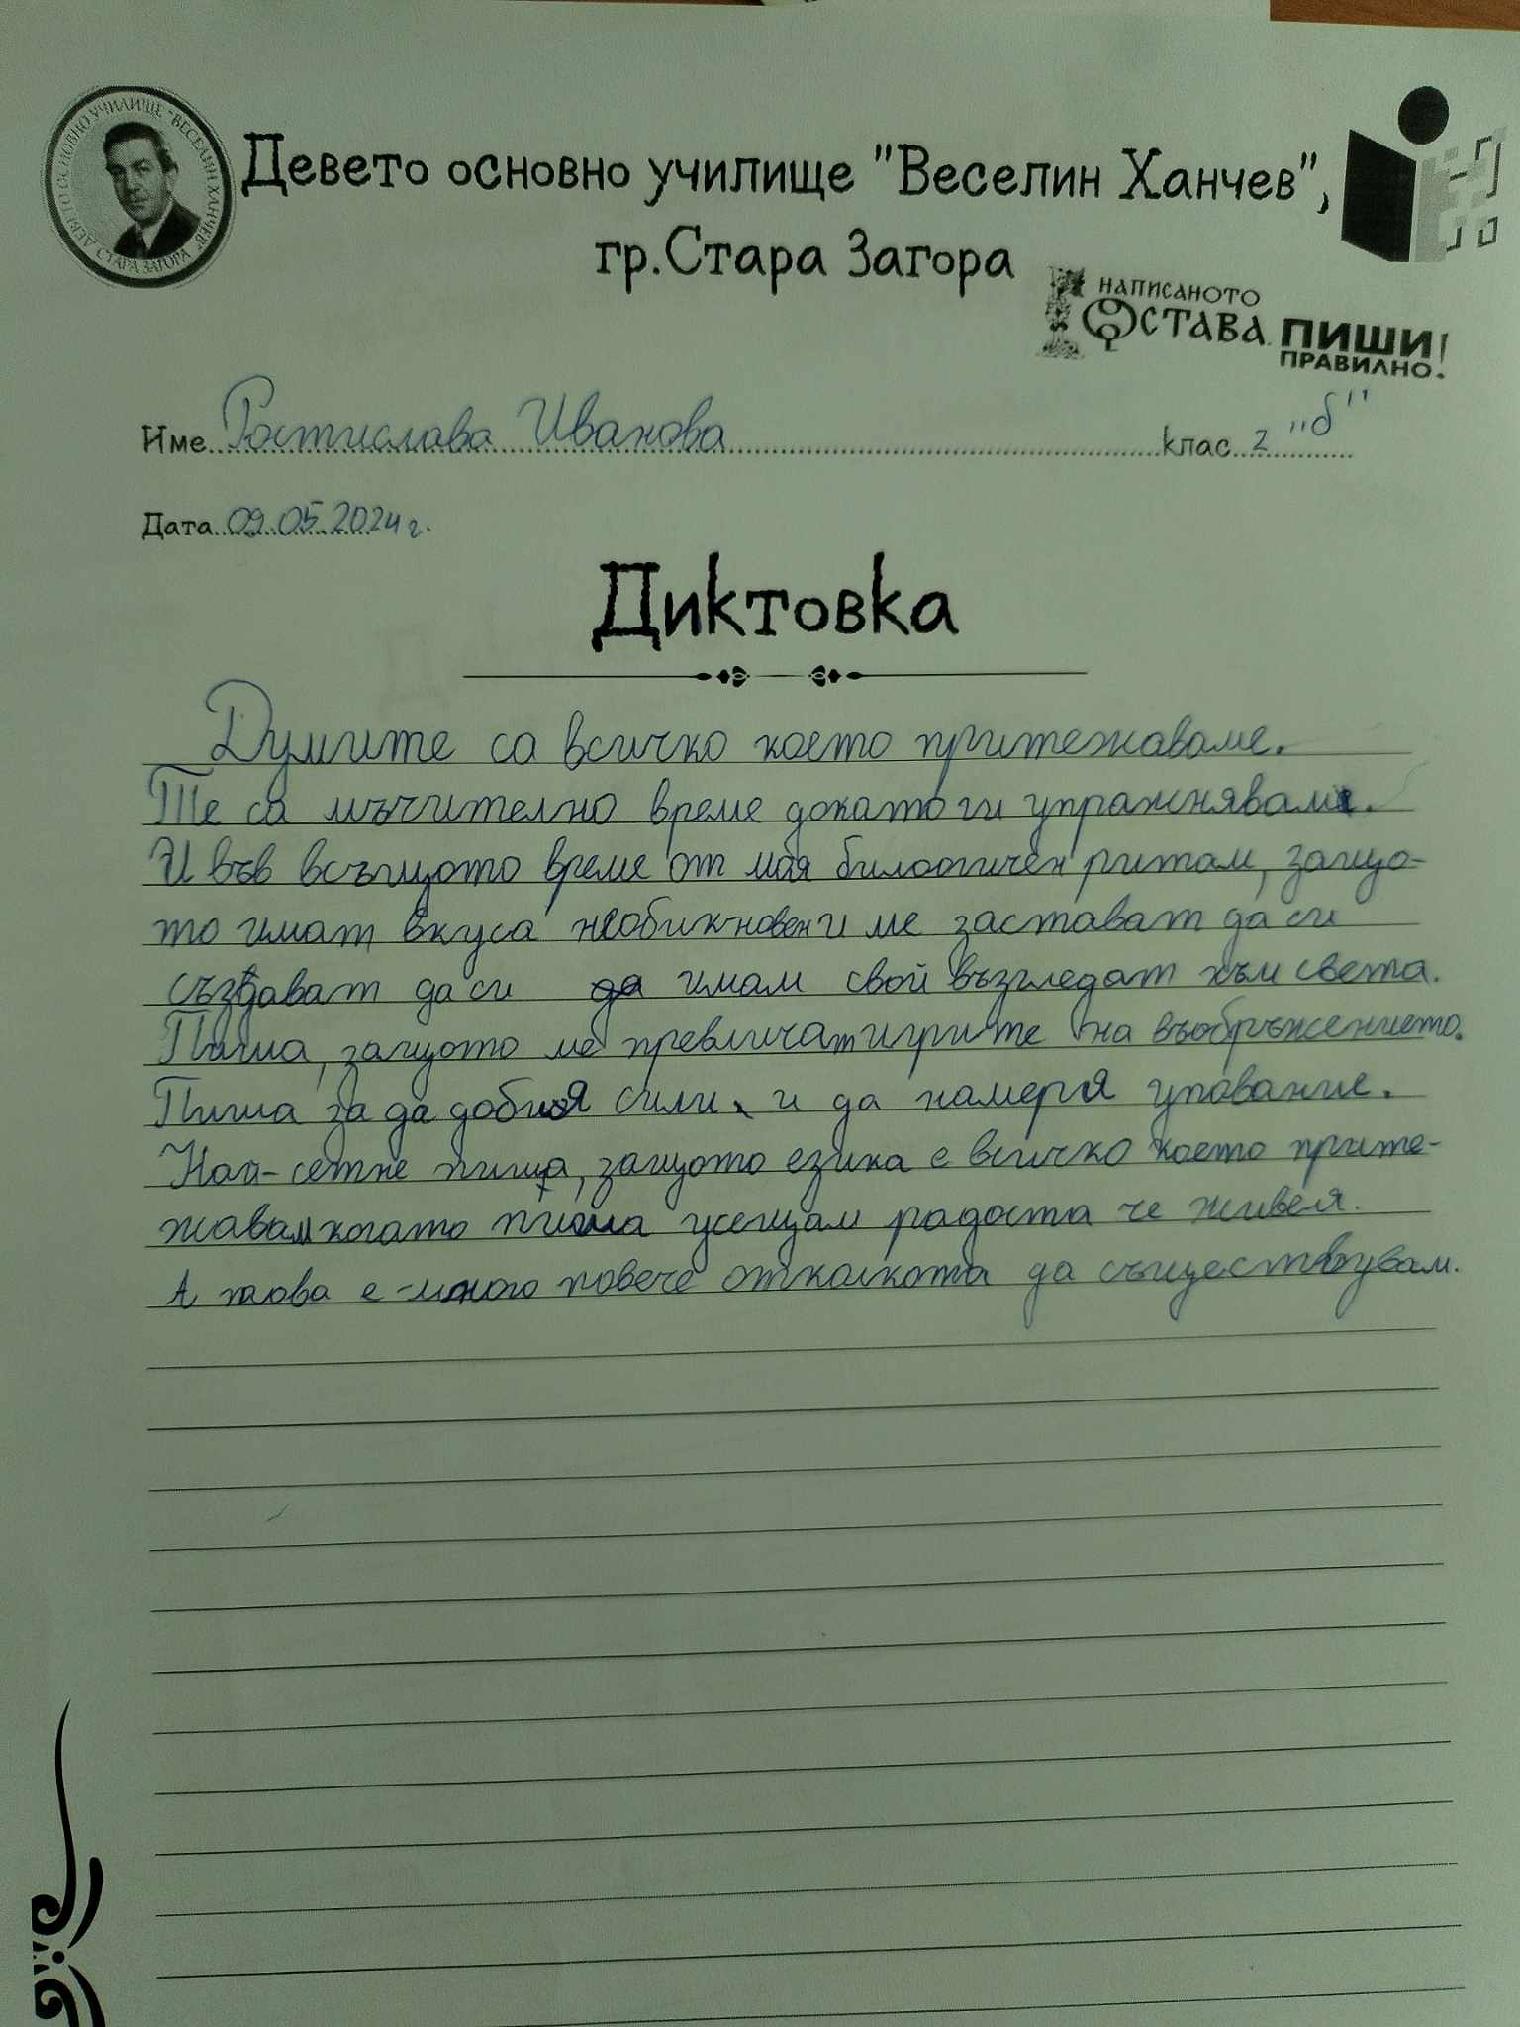 ДЕВЕТО ОСНОВНО УЧИЛИЩЕ "ВЕСЕЛИН ХАНЧЕВ" СТАРА ЗАГОРА
Девето основно училище "Веселин Ханчев",
гр.Стара Загора
НАПИСАНОТО
ОСТАВА ПИШИ
ПРАВИЛНО!
Име Ростислава Иванова клас 2 "б"
Дата 09.05.2024г.
Диктовка
Думите са всичко което притежаваме.
Те са мъчително време докато ги упражнявам.
И във всъщото време от мая билогичен ритам, защо-
то имат вкуса необикновен и ме застават да си
създават да си да имам свой възгледат към света.
Пиша, защото ме превличат игрите на въобръжението.
Пиша за да добия сили, и да намеря упование.
Най-сетне пиша, защото езика е всичко което прите-
жавам когато пиша усещам радоста че живея.
А това е много повече отколкота да съществувам.